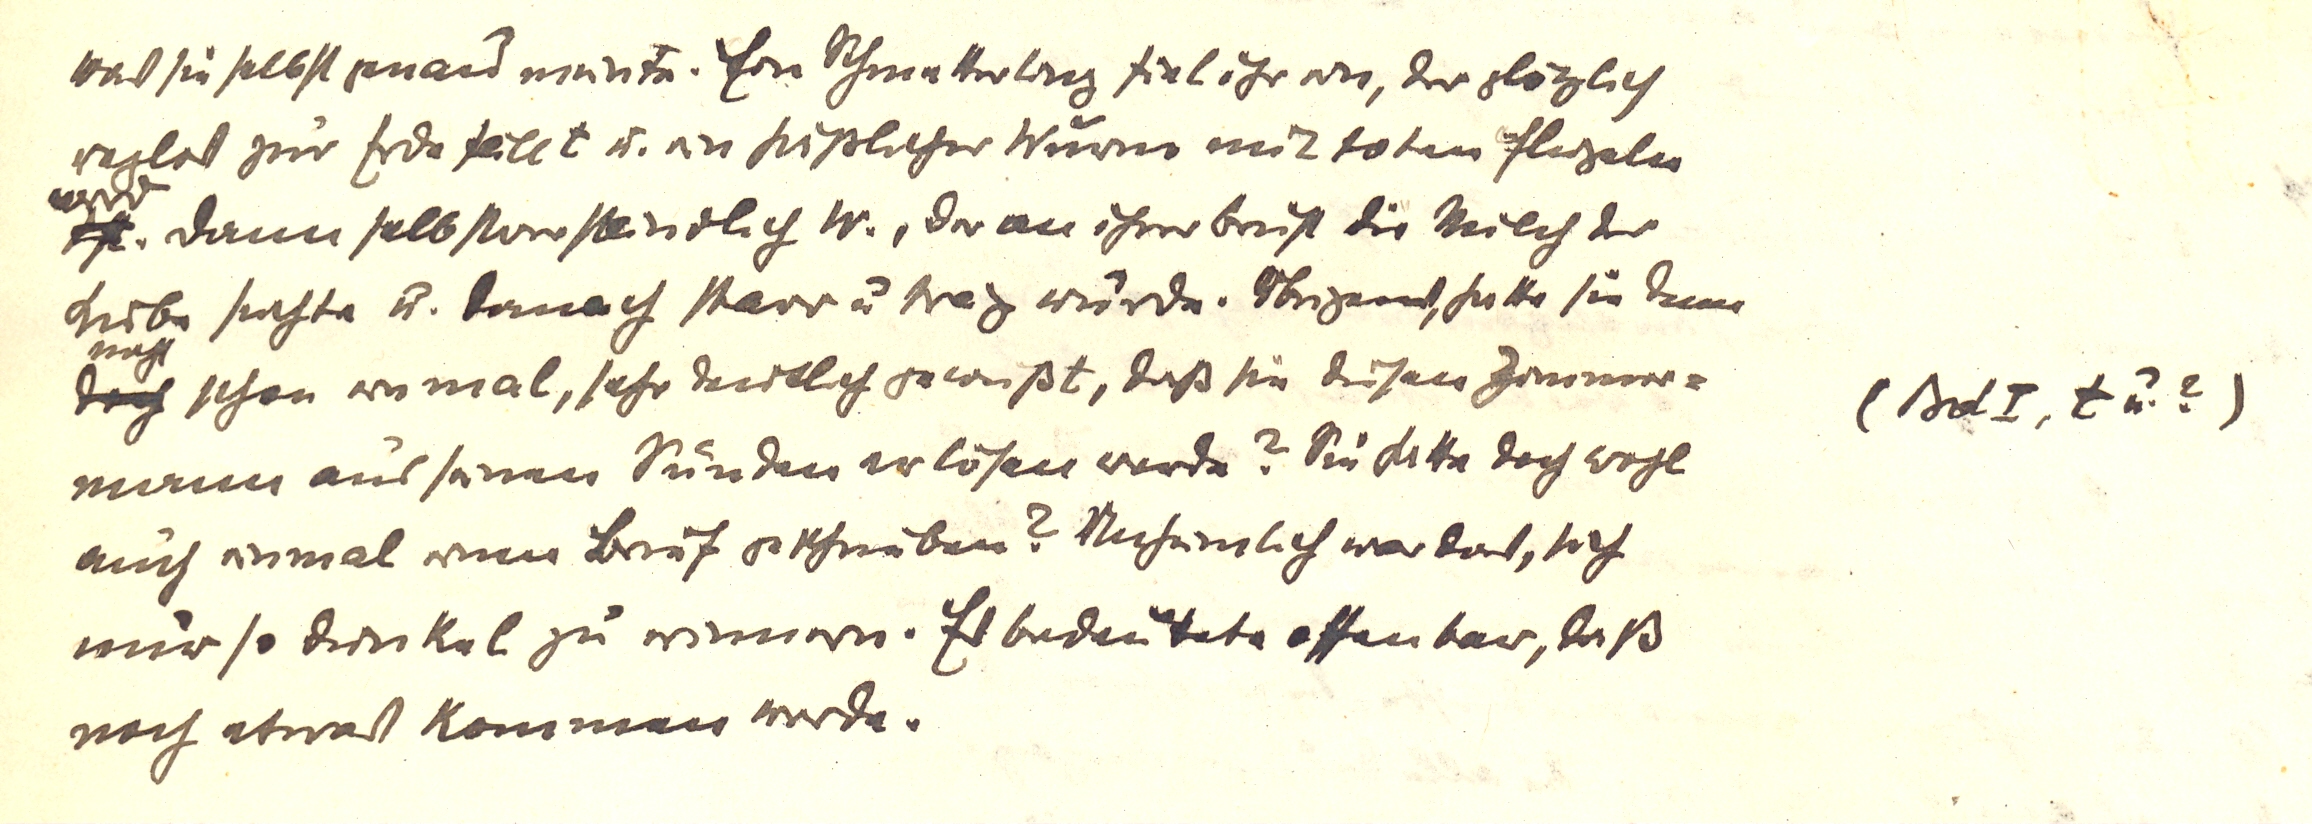 was sie selbst genau meinte. Ein Schmetterling fiel ihr ein, der plötzlich
reglos zur Erde fällt u. ein häßlicher Wurm mit toten Flügeln
wird
ist. Dann selbstverständlich W., der an ihrer Brust die Milch der
Liebe suchte u. danach starr u träg wurde. Übrigens, hatte sie denn
nicht
doch schon einmal, sehr deutlich gewußt, daß sie diesen Zimmer=
mann aus seinen Sünden erlösen werde? Sie hatte doch wohl
auch einmal einen Brief geschrieben? Unheimlich war das, sich
nur so dunkel zu erinnern. Es bedeutete offenbar, daß
noch etwas kommen werde.
(Bd I, t u.?)